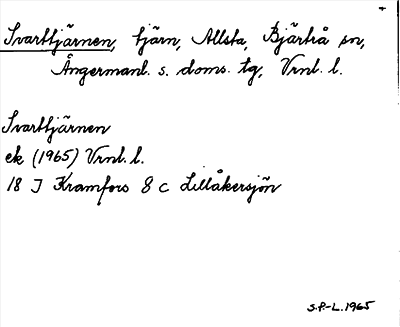 Svarttjärnen, tjärn, Allsta, Bjärtrå sn,
Ångermanl. s. doms. tg, Vrnl. l.
Svarttjärnen
ek (1965) Vrnl. l.
18 J Kramfors 8 c Lillåkersjön
S.P.-L. 1965